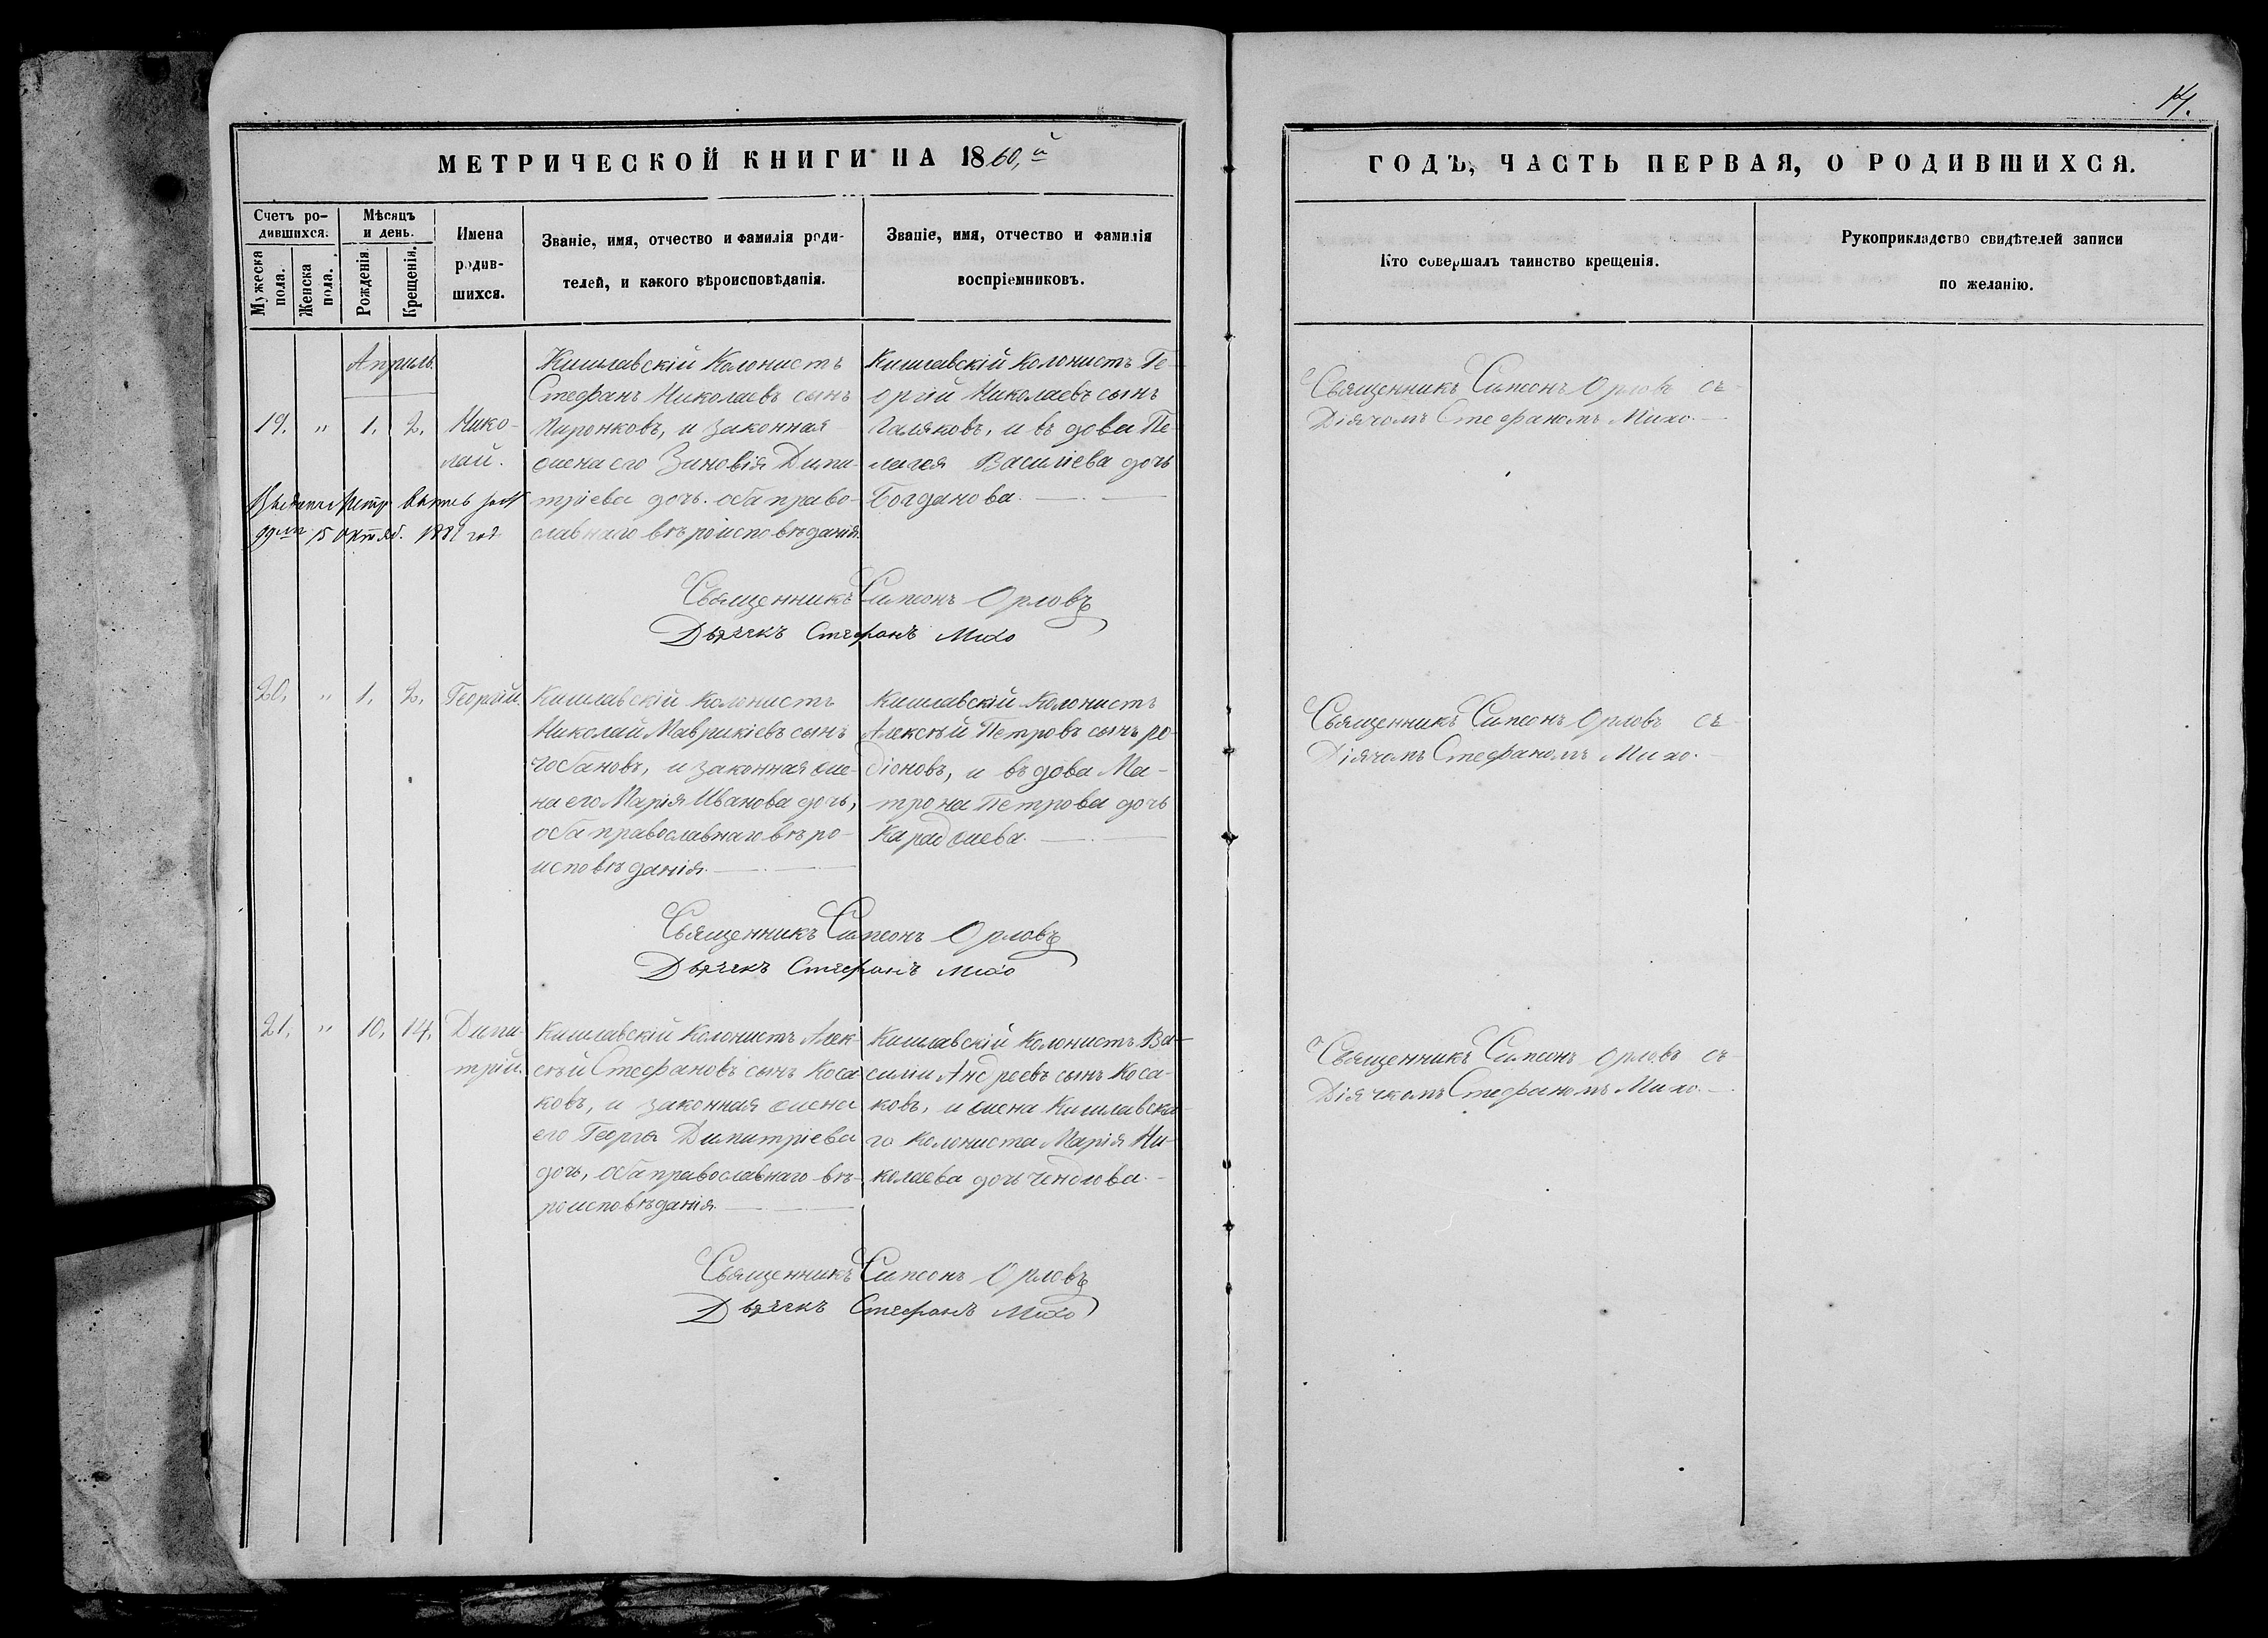 14.
МЕТРИЧЕСКОЙ КНИГИ НА 1860,й
ГОДЪ, ЧАСТЬ ПЕРВАЯ, О РОДИВШИХСЯ.
Счетъ ро-
дившихся.
Мужеска пола.
Женска пола.
Мѣсяцъ
и день.
Рожденія.
Крещенія.
Имена
родив-
шихся.
Званіе, имя, отчество и фамилія роди-
телей, и какого вѣроисповѣданія.
Званіе, имя, отчество и фамилія
воспріемниковъ.
Кто совершалъ таинство крещенія.
Рукоприкладство свидѣтелей записи
по желанію.
Апрель.
19. " 1. 2. Нико-
лай.
Кишлавскій Колонистъ
Стефанъ Николаевъ сынъ
Пиронковъ, и законная
жена его Зиновія Дими-
тріева дочь. оба право-
славнаго вѣроисповѣданія.
Кишлавскій Колонистъ Ге-
оргій Николаевъ сынъ
Галяковъ, и въдова Пе-
лагея Василіева дочь
Богданова.
Священникъ Симеонъ Орловъ съ
Діячомъ Стефаномъ Михо.
15 октяб. 1881 год
Священникъ Симеонъ Орловъ
Дьячекъ Стефанъ Михо
20. " 1. 2. Георгій.
Кишлавскій Колонистъ
Николай Маврикіевъ сынъ
Чобановъ, и законная же-
на его Марія Иванова дочь,
оба православнаго вѣро-
исповѣданія.
Кишлавскій Колонистъ
Алексѣй Петровъ сынъ Ро-
діоновъ, и въдова Ма-
трона Петрова дочь
Караджиева.
Священникъ Симеонъ Орловъ съ
Діячомъ Стефаномъ Михо.
Священникъ Симеонъ Орловъ
Дьячекъ Стефанъ Михо
21. " 10. 14. Дими-
трій.
Кишлавскій Колонистъ Алек-
сѣй Стефановъ сынъ Коса
ковъ, и законная жена
его Георгія Димитріева
дочь, оба православнаго вѣ-
роисповѣданія.
Кишлавскій Колонистъ Ва-
силій Андреевъ сынъ Коса-
ковъ, и жена Кишлавска-
го Колониста Марія Ни-
колаева дочь
Священникъ Симеонъ Орловъ съ
Діячкомъ Стефаномъ Михо.
Священникъ Симеонъ Орловъ
Дьячекъ Стефанъ Михо